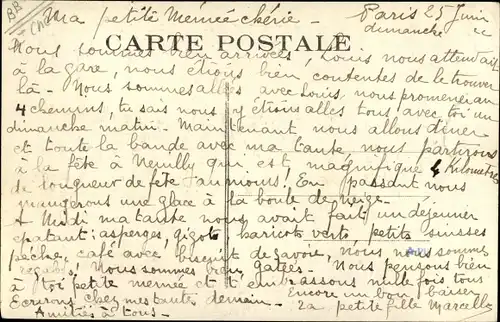 Ma petite Mémée chérie - Paris 25 Juin
dimanche
CARTE POSTALE
Nous sommes bien arrivées, Louis nous attendait
à la gare, nous étions bien contentes de le trouver
là - Nous sommes allés avec Louis nous promener aux
4 chemins, tu sais nous y étions allés tous avec toi un
dimanche matin - Maintenant nous allons dîner
et toute la bande avec ma tante nous partirons
à la fête à Neuilly qui est magnifique 4 Kilomètres
de longueur de fête au moins! En passant nous
mangerons une glace à la boule de neige -
A Midi ma tante nous avait fait un déjeuner
épatant: asperges, gigot haricots verts, petits suisses
pêches, café avec biscuit de Savoie, nous nous sommes
régalés, Nous sommes bien gâtées - Nous pensons bien
à toi petite mémée et t'embrassons mille fois tous
Ecrirons chez mes tantes demain - Encore un bon baiser
Amitiés à tous - Ta petite fille Marcelle